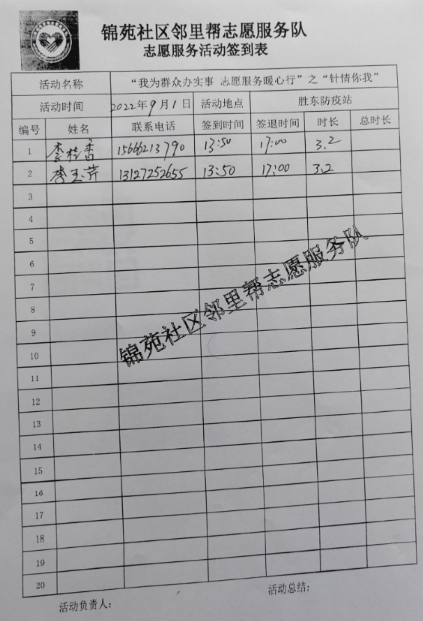 锦苑社区邻里帮志愿服务队
志愿服务活动签到表
活动名称 “我为群众办实事 志愿服务暖心行”之“针情你我”
活动时间 2022年9月1日 活动地点 胜东防疫站
编号 姓名 联系电话 签到时间 签退时间 时长 总时长
1 李桂香 15666213790 13:50 17:00 3.2
2 李玉芹 13127252655 13:50 17:00 3.2
3
4
5
6
7
8
9
10
11
12
13
14
15
16
17
18
19
20
锦苑社区邻里帮志愿服务队
活动负责人: 活动总结: